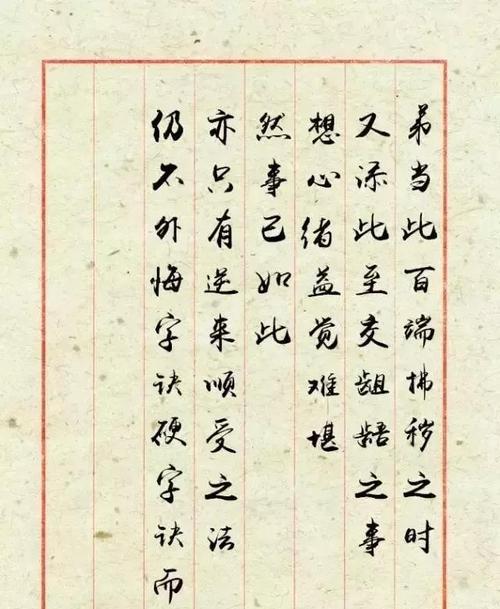 弟当此百端拂秽之时
又添此至交龃龉之事
想心绪益觉难堪
然事已如此
亦只有逆来顺受之法
仍不外悔字诀硬字诀而